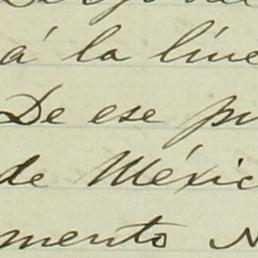 á la líne
De ese pu
de Méxic
mento N